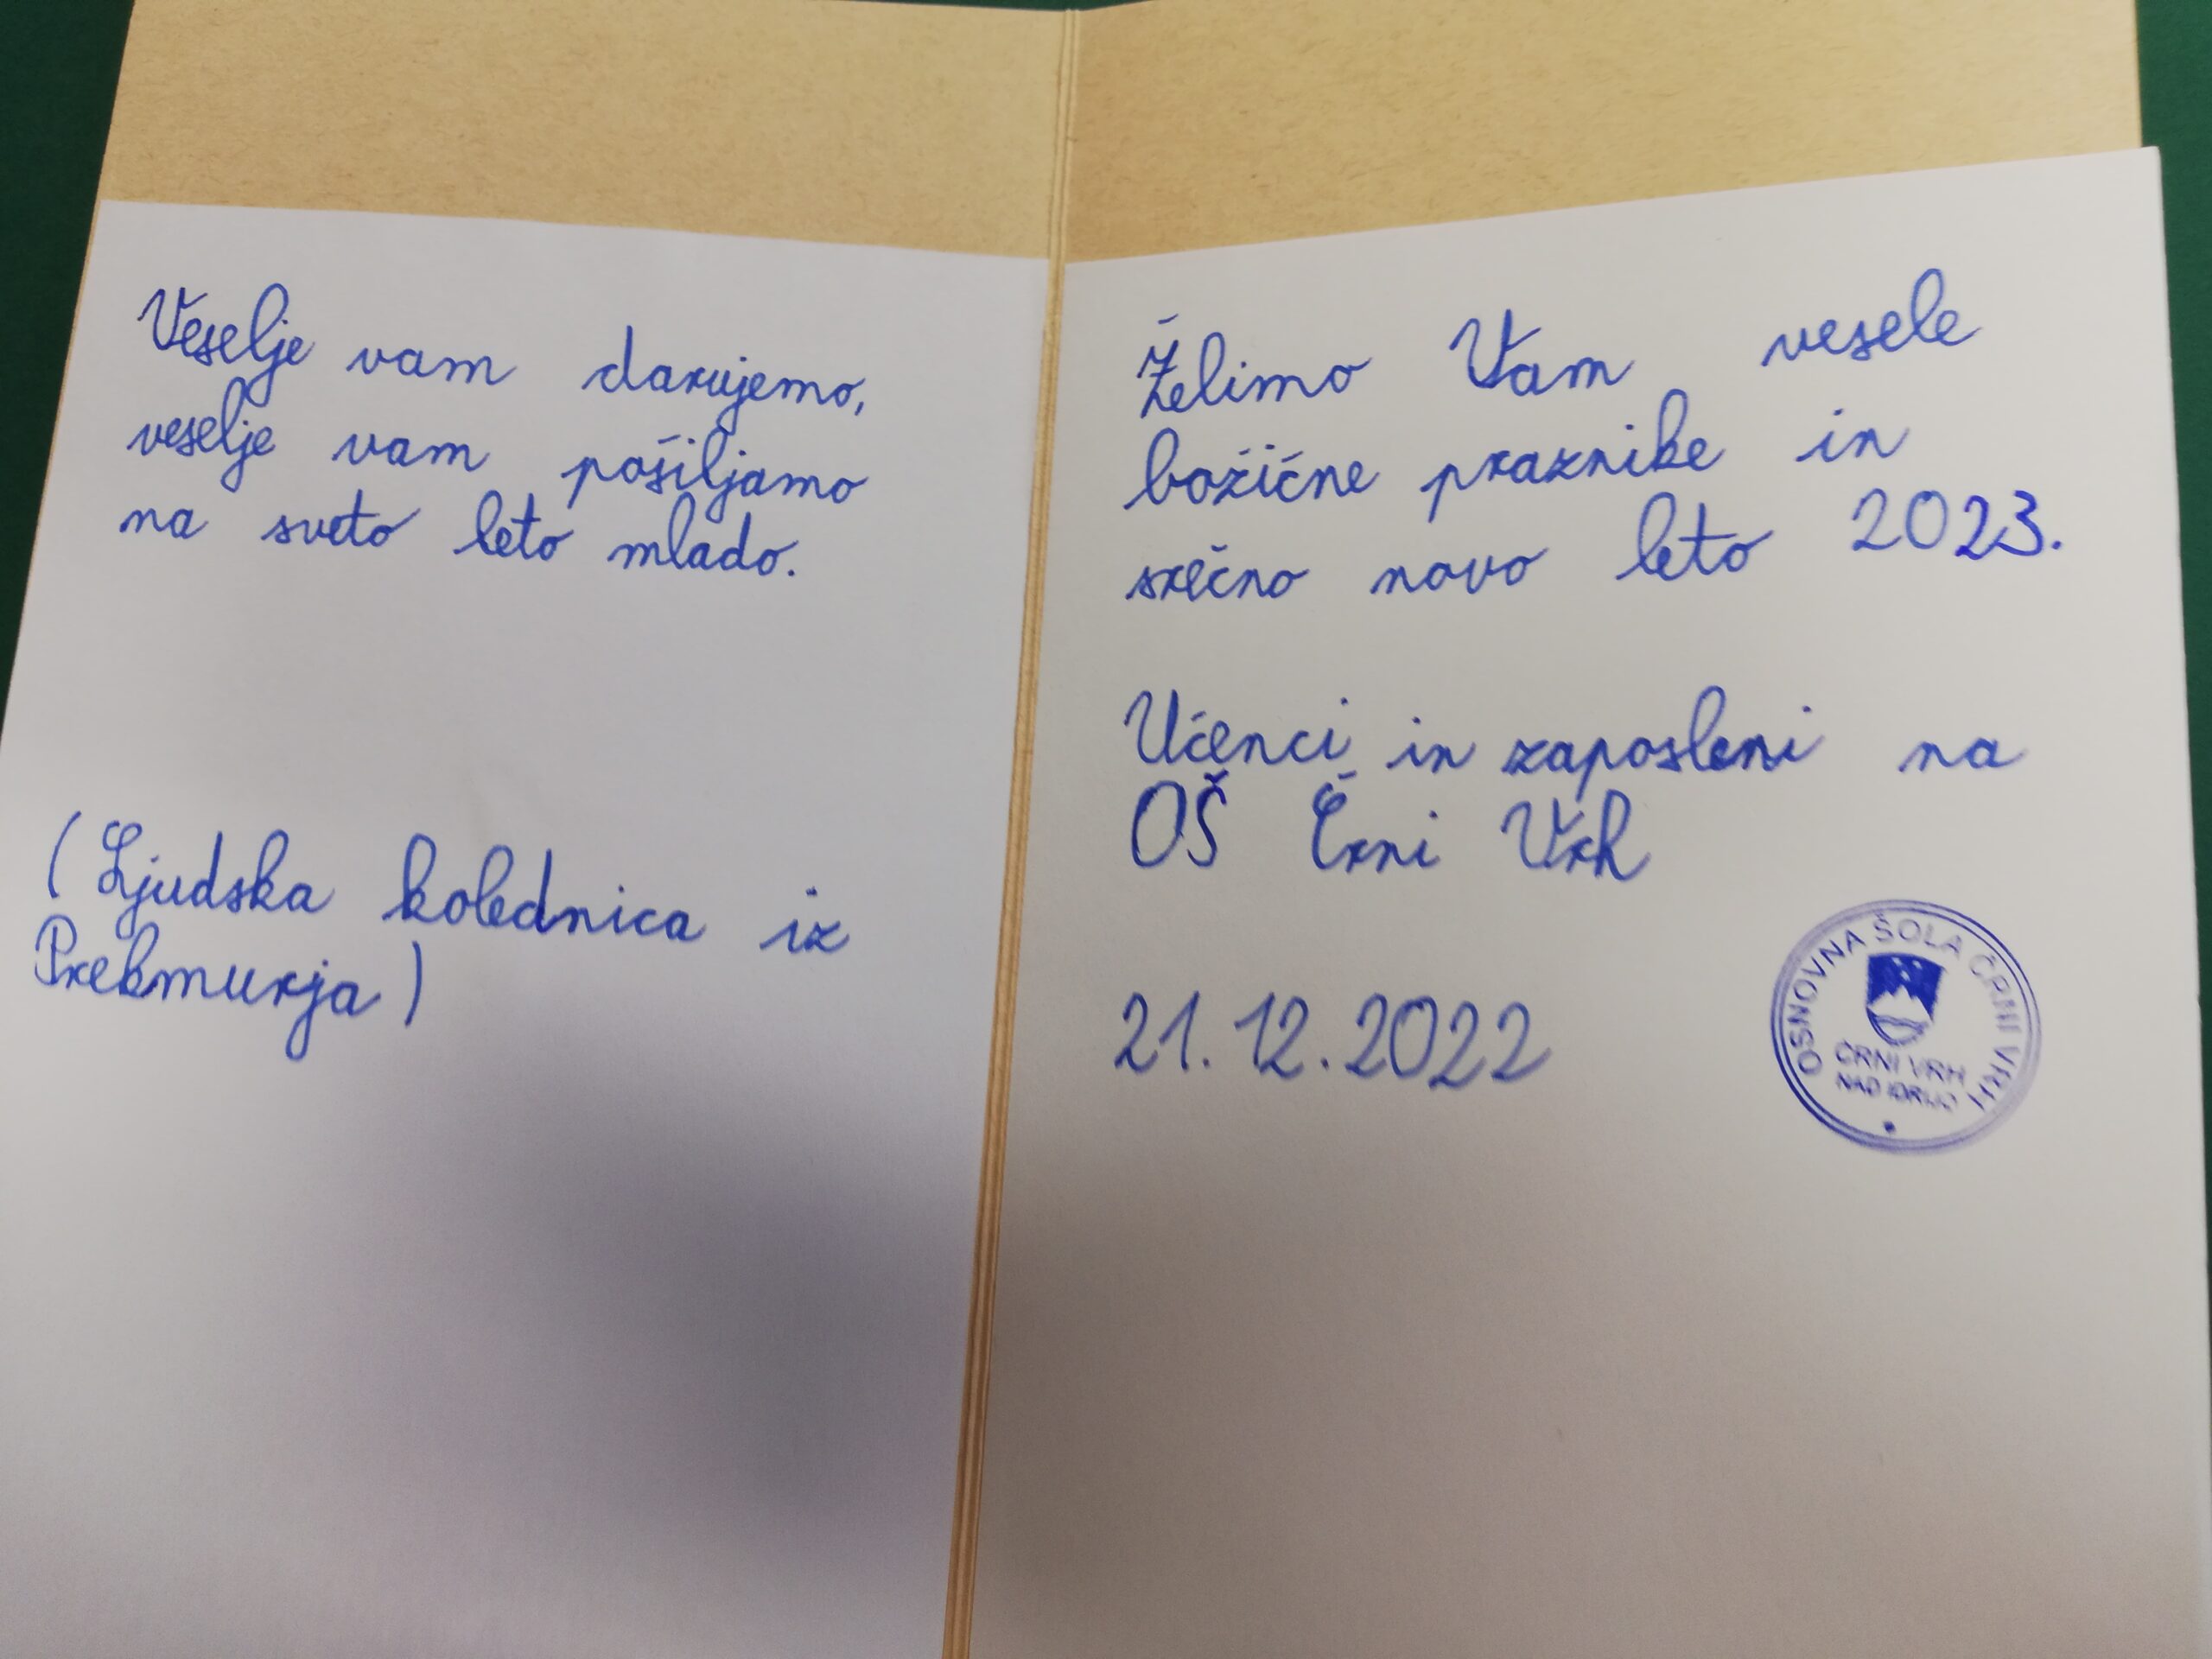 Veselje vam darujemo,
veselje vam pošiljamo
na sveto leto mlado.
(Ljudska kolednica iz
Prekmurja)
Želimo Vam vesele
božične praznike in
srečno novo leto 2023.
Učenci in zaposleni na
OŠ Črni Vrh
21.12.2022
OSNOVNA ŠOLA ČRNI VRH
ČRNI VRH
NAD IDRIJO